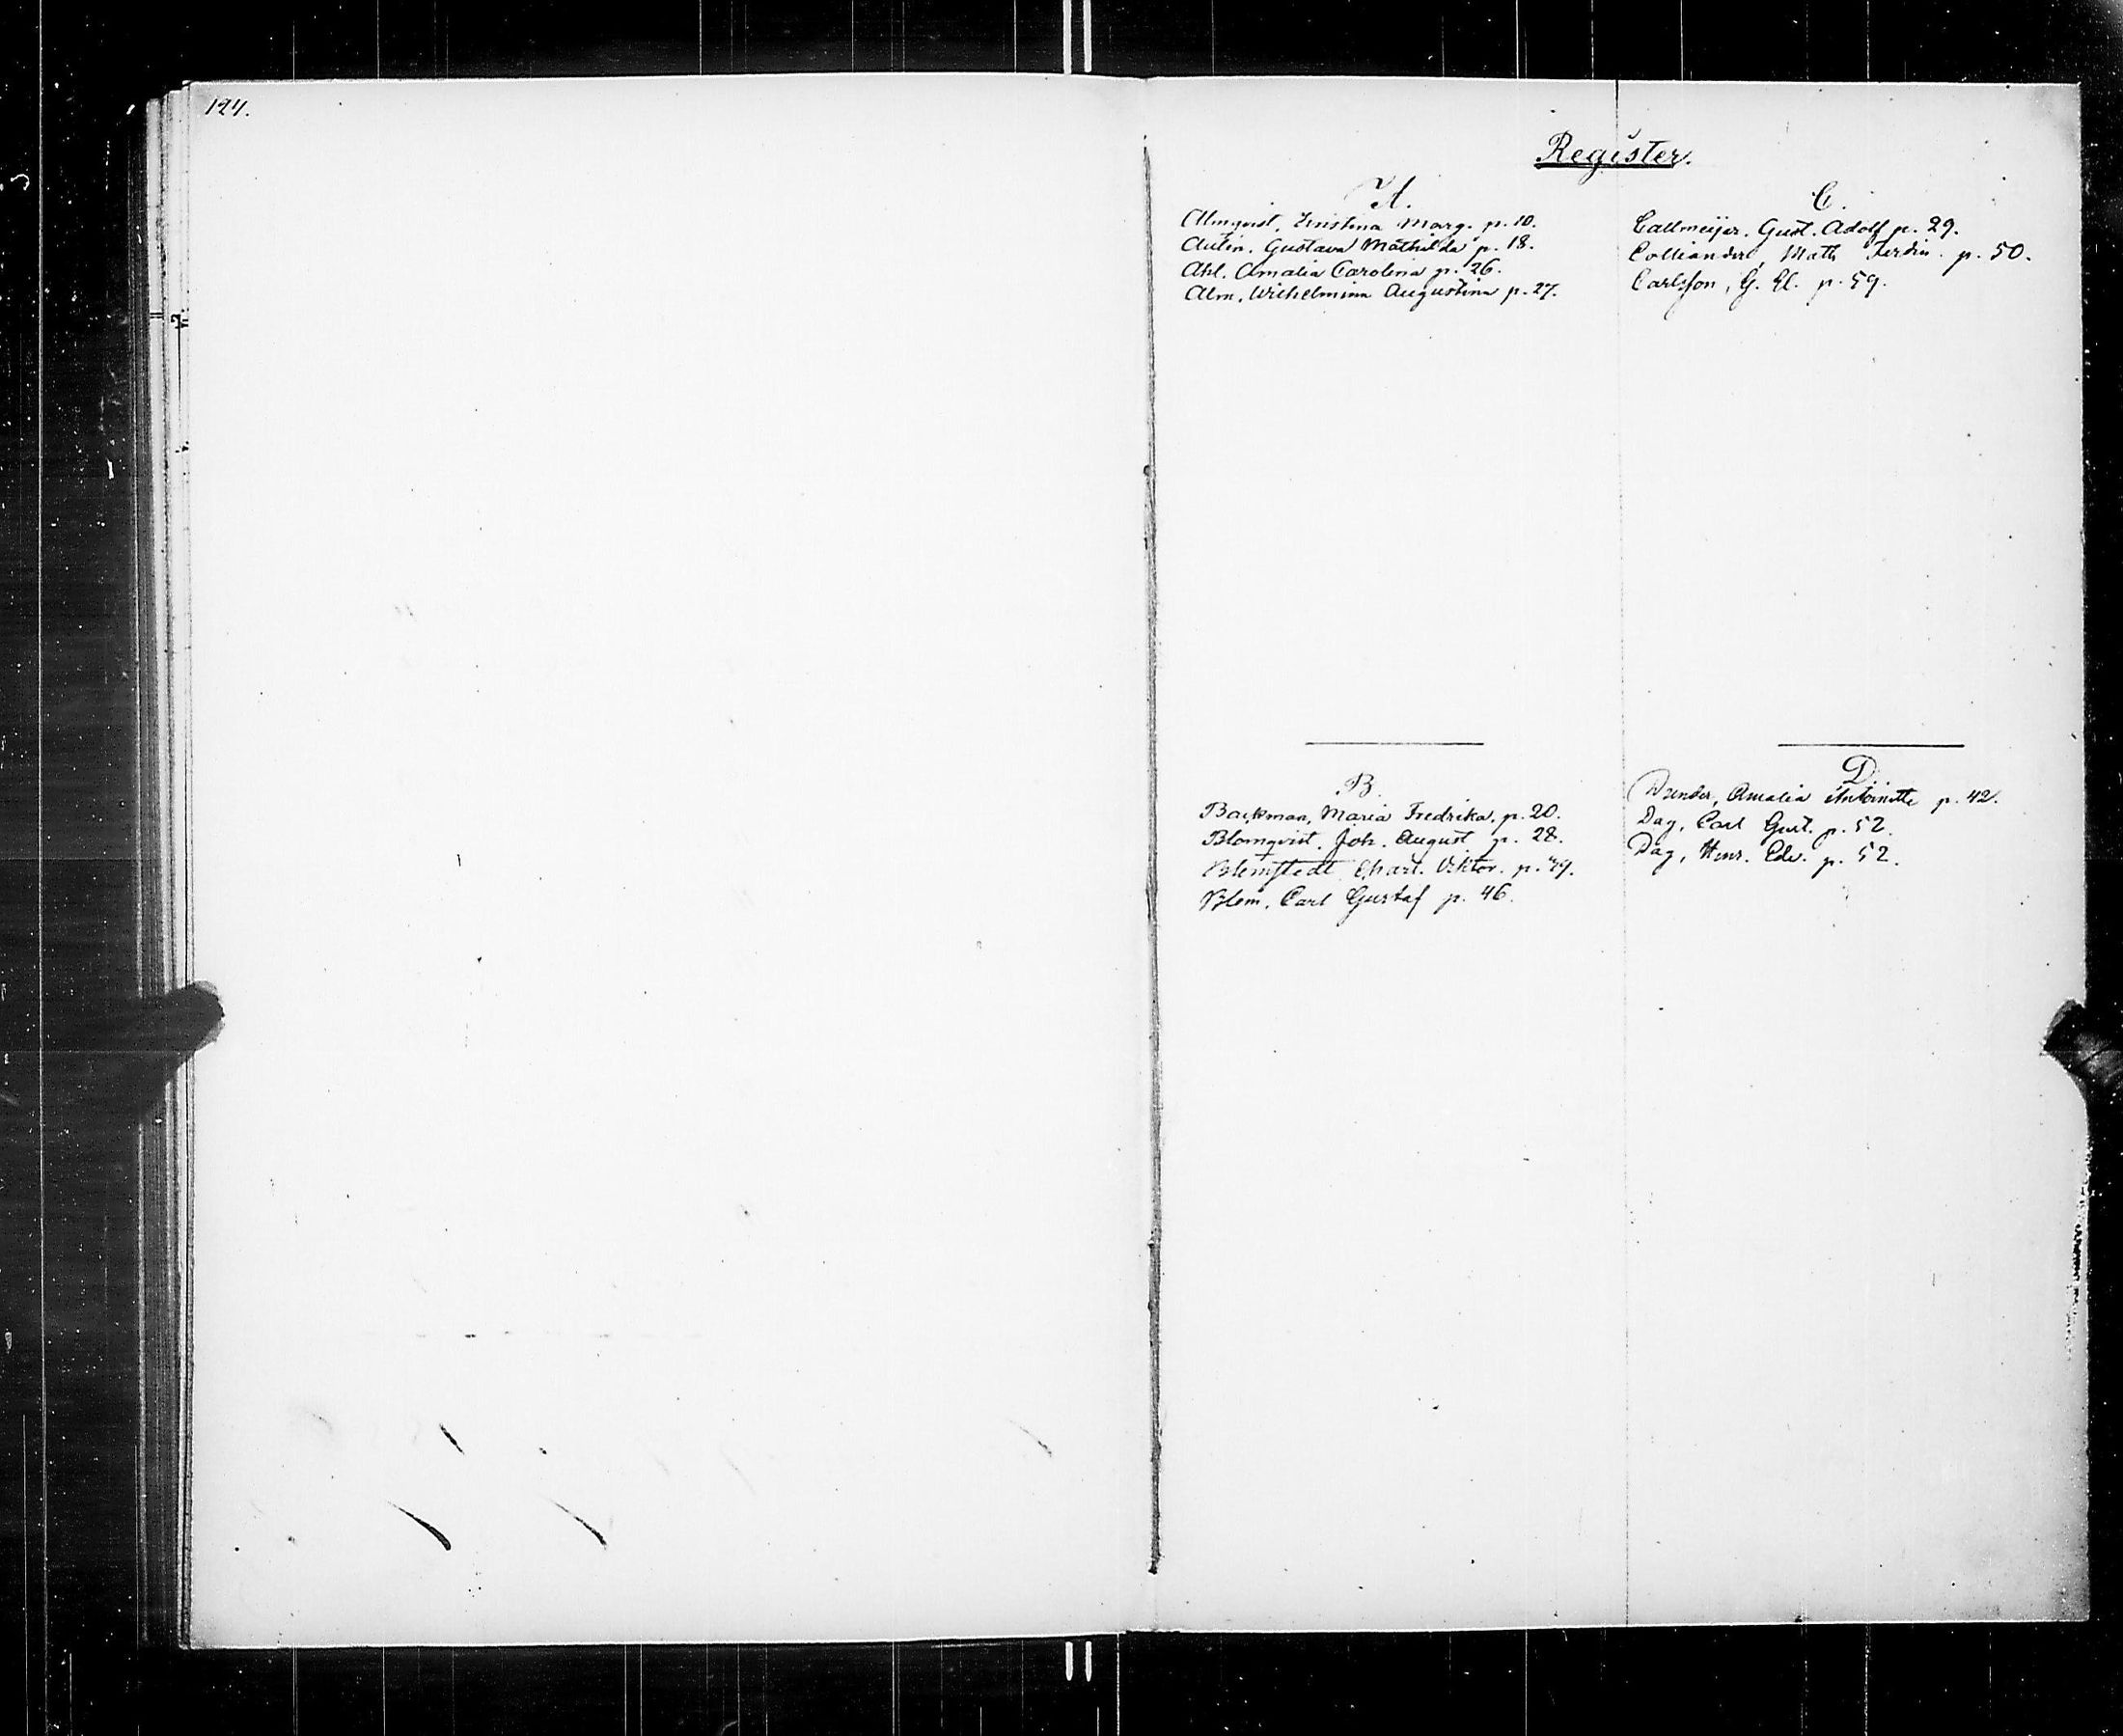 124.
Register.
A.
Almqvist, Kristina Marg. p. 10.
Aulin, Gustava Mathilda p. 18.
Ahl, Amalia Carolina p. 26.
Alm, Wilhelmina Augustina p. 27.
B.
Backman, Maria Fredrika, p. 20.
Blomqvist, Joh. August p. 28.
Blomstedt, Viktor. p.
Blom, Carl Gustaf p. 46.
C.
Callmeijer, Gust. Adolf p. 29.
Colliander, Math Ferdin. p. 50.
Carlsson, G. El. p. 59.
D.
Dunder, Amalia Antoinette p. 42.
Dag, Carl Gust. p. 52.
Dag, Henr. Edv. p. 52.